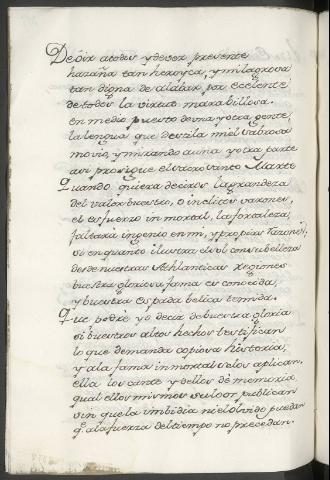 De oir a todos y de ver presente
hazaña tan heroyca, y milagrosa
tan digna de alabar, por ecelente
de todos la virtud marabillosa.
en medio puesto de vna y otra gente,
la lengua que destila miel sabrosa
movio, y mirando a vna y otra parte
asi prosigue el valor santo Marte
Quando quiera deciros la grandeza
del valor buestro, o inclitos varones,
el esfuerzo inmortal, la fortaleza,
faltará ingenio en mi, y propias razones,
si en quanto ilustra el sol con su belleza
desde nuestras Athlanticas regiones
buestra gloriosa fama es conocida,
y buestra espada belica temida.
Que podre yo decir de buestra gloria
si buestros altos hechos testifican
lo que demanda copiosa historia,
y a la fama inmortal se los aplican.
ella los cante y dellos dé memoria
qual ellos mismos su loor publican
sin que la imbidia ni el olvido puedan
q. a la fuerza del tiempo no precedan.